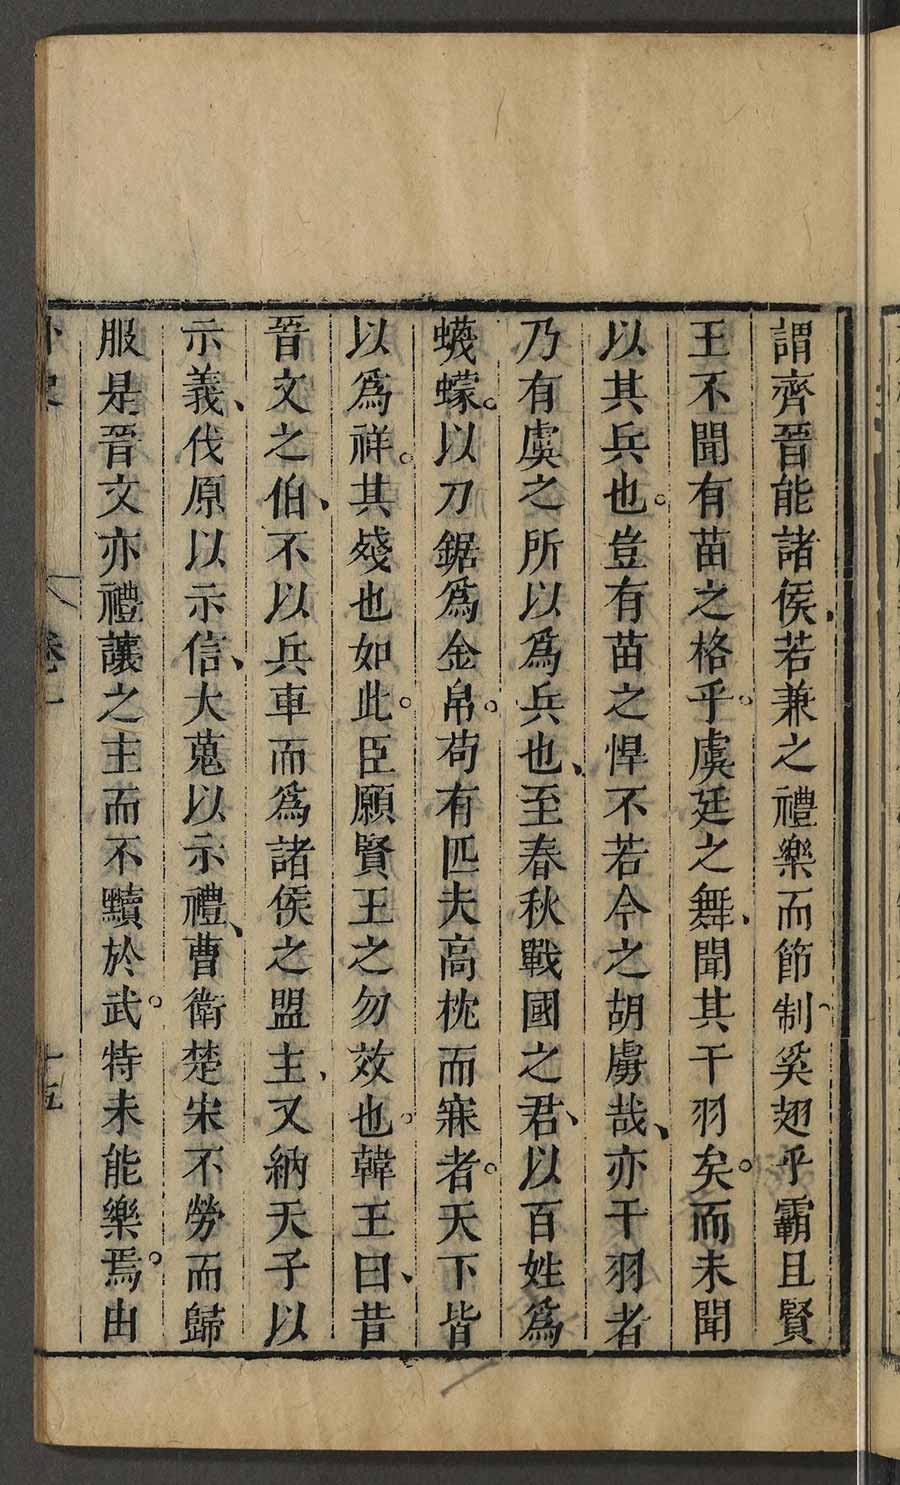 謂齊晉能諸侯、若兼之禮樂而節制、奚翅乎霸且賢
王不聞有苗之格乎。虞廷之舞、聞其干羽矣。而未聞
以其兵也。豈有苗之悍不若今之胡虜哉、亦干羽者
乃有虞之所以爲兵也、至春秋戰國之君、以百姓爲
蠛蠓。以刀鋸爲金帛。苟有匹夫高枕而寐者。天下皆
以爲祥。其殘也如此。臣願賢王之勿效也。韓王曰、昔
晉文之伯、不以兵車而爲諸侯之盟主、又納天子以
示義、伐原以示信、大蒐以示禮、曹衛楚宋不勞而歸
服是晉文亦禮讓之主而不黷於武。特未能樂焉。由
外史 卷一 十五